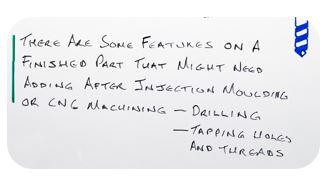 THERE ARE SOME FEATURES ON A
FINISHED PART THAT MIGHT NEED
ADDING AFTER INJECTION MOULDING
OR CNC MACHINING – DRILLING
– TAPPING HOLES
AND THREADS